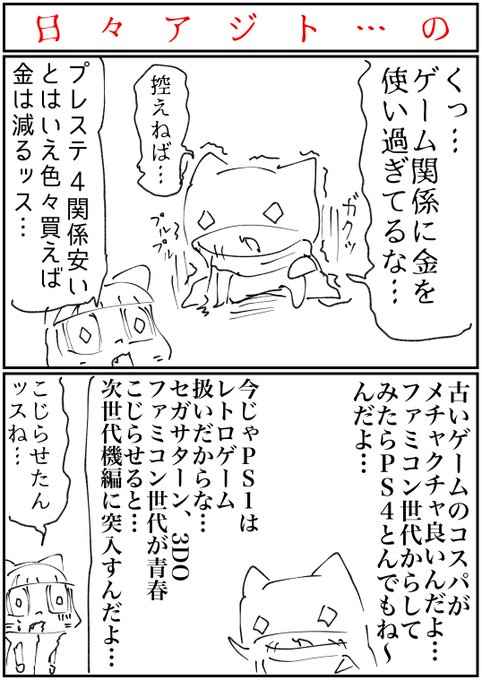 日々アジト…の
くっ…
ゲーム関係に金を
使い過ぎてるな…
ガクッ
控えねば…
プルプル
プレステ4関係安い
とはいえ色々買えば
金は減るッス…
古いゲームのコスパが
メチャクチャ良いんだよ…
ファミコン世代からして
みたらPS4とんでもね～
んだよ…
今じゃPS1は
レトロゲーム
扱いだからな…
セガサターン、3DO
ファミコン世代が青春
こじらせると…
次世代機編に突入すんだよ…
こじらせたん
ッスね…